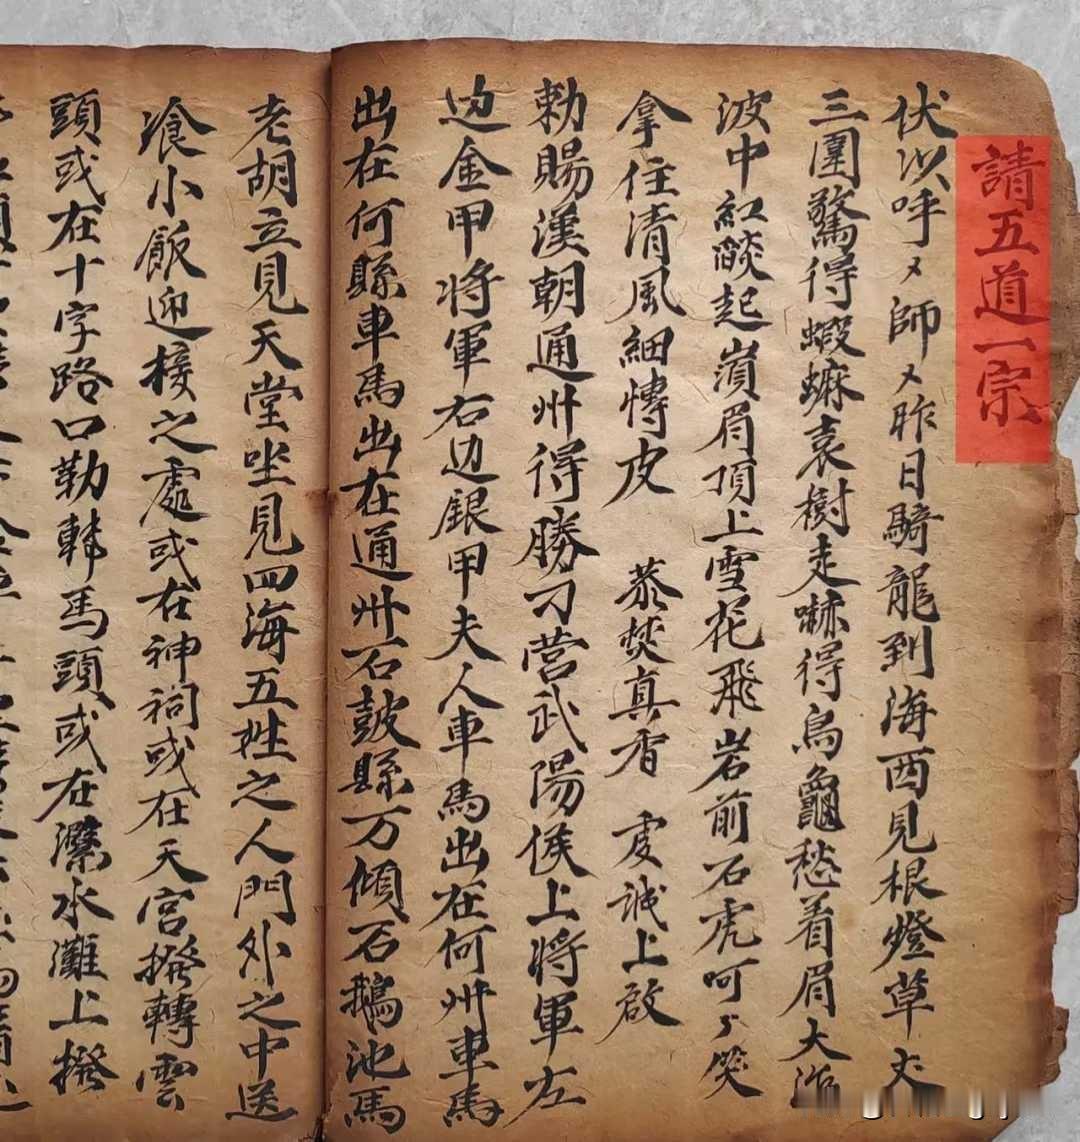 請五道一宗
伏以呼〻師〻昨日騎龍到海西見根燈草丈
三圍驚得蝦蟆袁樹走嚇得烏龜愁着眉大海
波中紅燄起嶺眉頂上雪花飛岩前石虎呵〻笑
拿住清風細慱皮 恭焚真香 虔誠上啟
勅賜漢朝通州得勝刁营武陽侯上將軍左
边金甲将軍右边銀甲夫人車馬出在何州車馬
出在何縣車馬出在通州石鼓縣万傾石鵝池馬
老胡立見天堂坐見四海五姓之人門外之中送
飡小飯迎接之處或在神祠或在天宮撥轉雲
頭或在十字路口勒轉馬頭或在灤水灘上撥